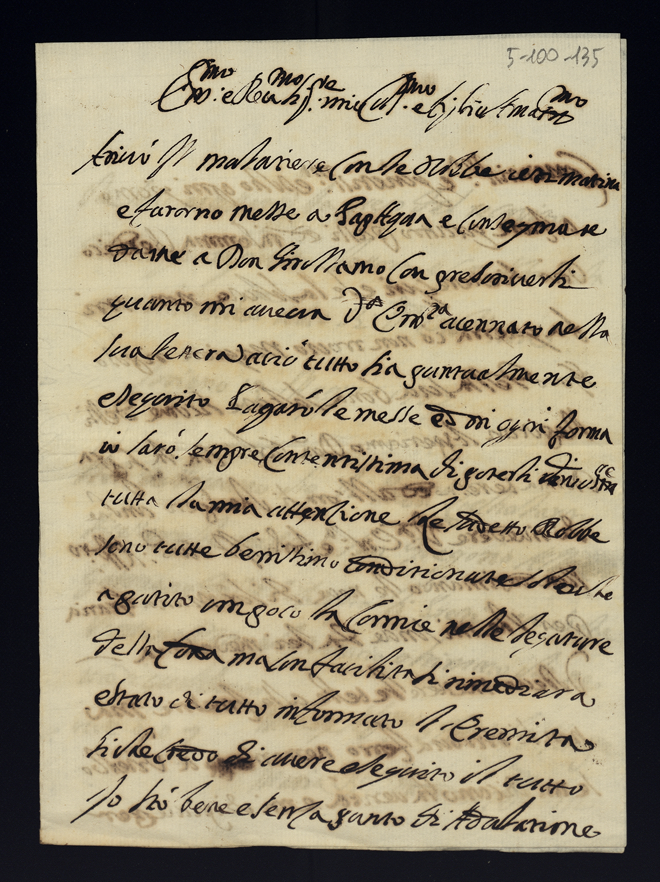 5-100-135
Em.mo e Rev.mo Sig.re mio Col.mo e
Arivò Il mulatiere con le Robbe ieri matina
e furorno messe a e Consegma te
dame a Don Girollamo Con prescriverli
quanto mi aveva V.a Em.za acennato nella
sua letera aciò tutto sia puntualmente
eseguito Pagarò le messe ed in ogni forma
io sarò sempre Contentissima di poterli
tutta la mia attenzione le sudette Robbe
sono tutte benissimo condizionate solo che
a patito un poco la Cornice nelle legature
della ma con facilità si rimediara
e stato di tutto informato l'Eremita
siche Credo di avere eseguito il tutto
Io stò bene e senza punto di Adulatione